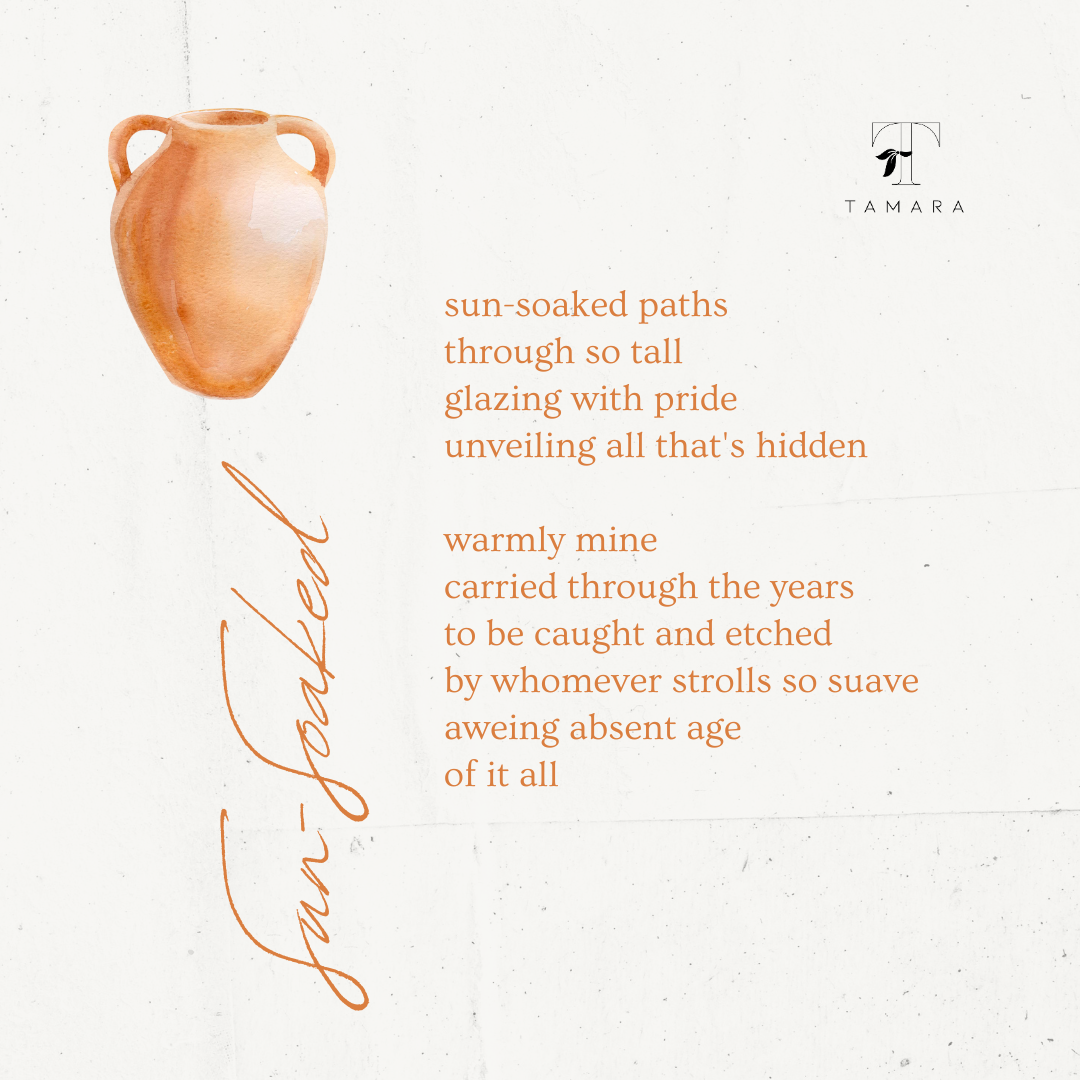 TAMARA
Sun-Soaked
sun-soaked paths
through so tall
glazing with pride
unveiling all that's hidden
warmly mine
carried through the years
to be caught and etched
by whomever strolls so suave
aweing absent age
of it all